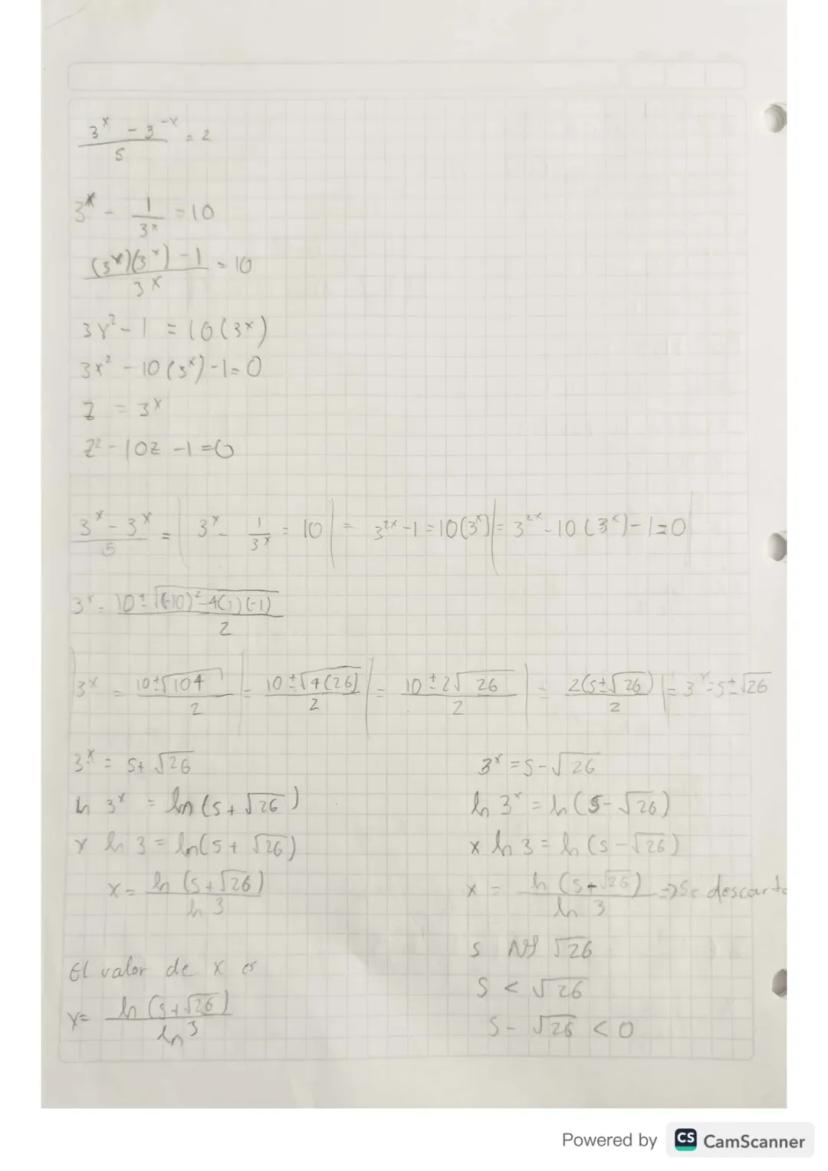 3^x - 3^-x / 5 = 2
3^x - 1/3^x = 10
(3^x)(3^x) - 1 / 3^x = 10
3x² - 1 = 10(3^x)
3x² - 10(3^x) - 1 = 0
z = 3^x
z² - 10z - 1 = 0
3^x - 3^x / 5 = | 3^x - 1/3^x = 10 | = 3^2x - 1 = 10(3^x) | = 3^2x - 10(3^x) - 1 = 0 |
3^x = 10 ± √(-10)² - 4(1)(-1) / 2
| 3^x = 10 ± √104 / 2 | = 10 ± √4(26) / 2 | = 10 ± 2√26 / 2 | = 2(5 ± √26) / 2 | = 3^x = 5 ± √26
3^x = 5 + √26
ln 3^x = ln (5 + √26)
x ln 3 = ln(5 + √26)
x = ln (5 + √26) / ln 3
El valor de x es
x = ln (5 + √26) / ln 3
3^x = 5 - √26
ln 3^x = ln (5 - √26)
x ln 3 = ln (5 - √26)
x = ln (5 + √26) / ln 3 => Se descarta
5 √26
5 < √26
5 - √26 < 0
Powered by CS CamScanner